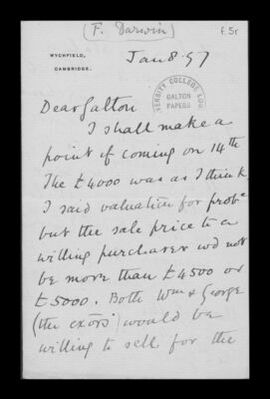 (F. Darwin)
f.5r
WYCHFIELD,
CAMBRIDGE.
Jan 8. 97
UNIVERSITY COLLEGE LON
GALTON
PAPERS
Dear Galton
I shall make a
point of coming on 14th
The £4000 was as I think
I said valuation for probe
but the sale price to a
willing purchaser wd not
be more than £4500 or
£5000. Both Wm & George
(the exors) would be
willing to sell for the